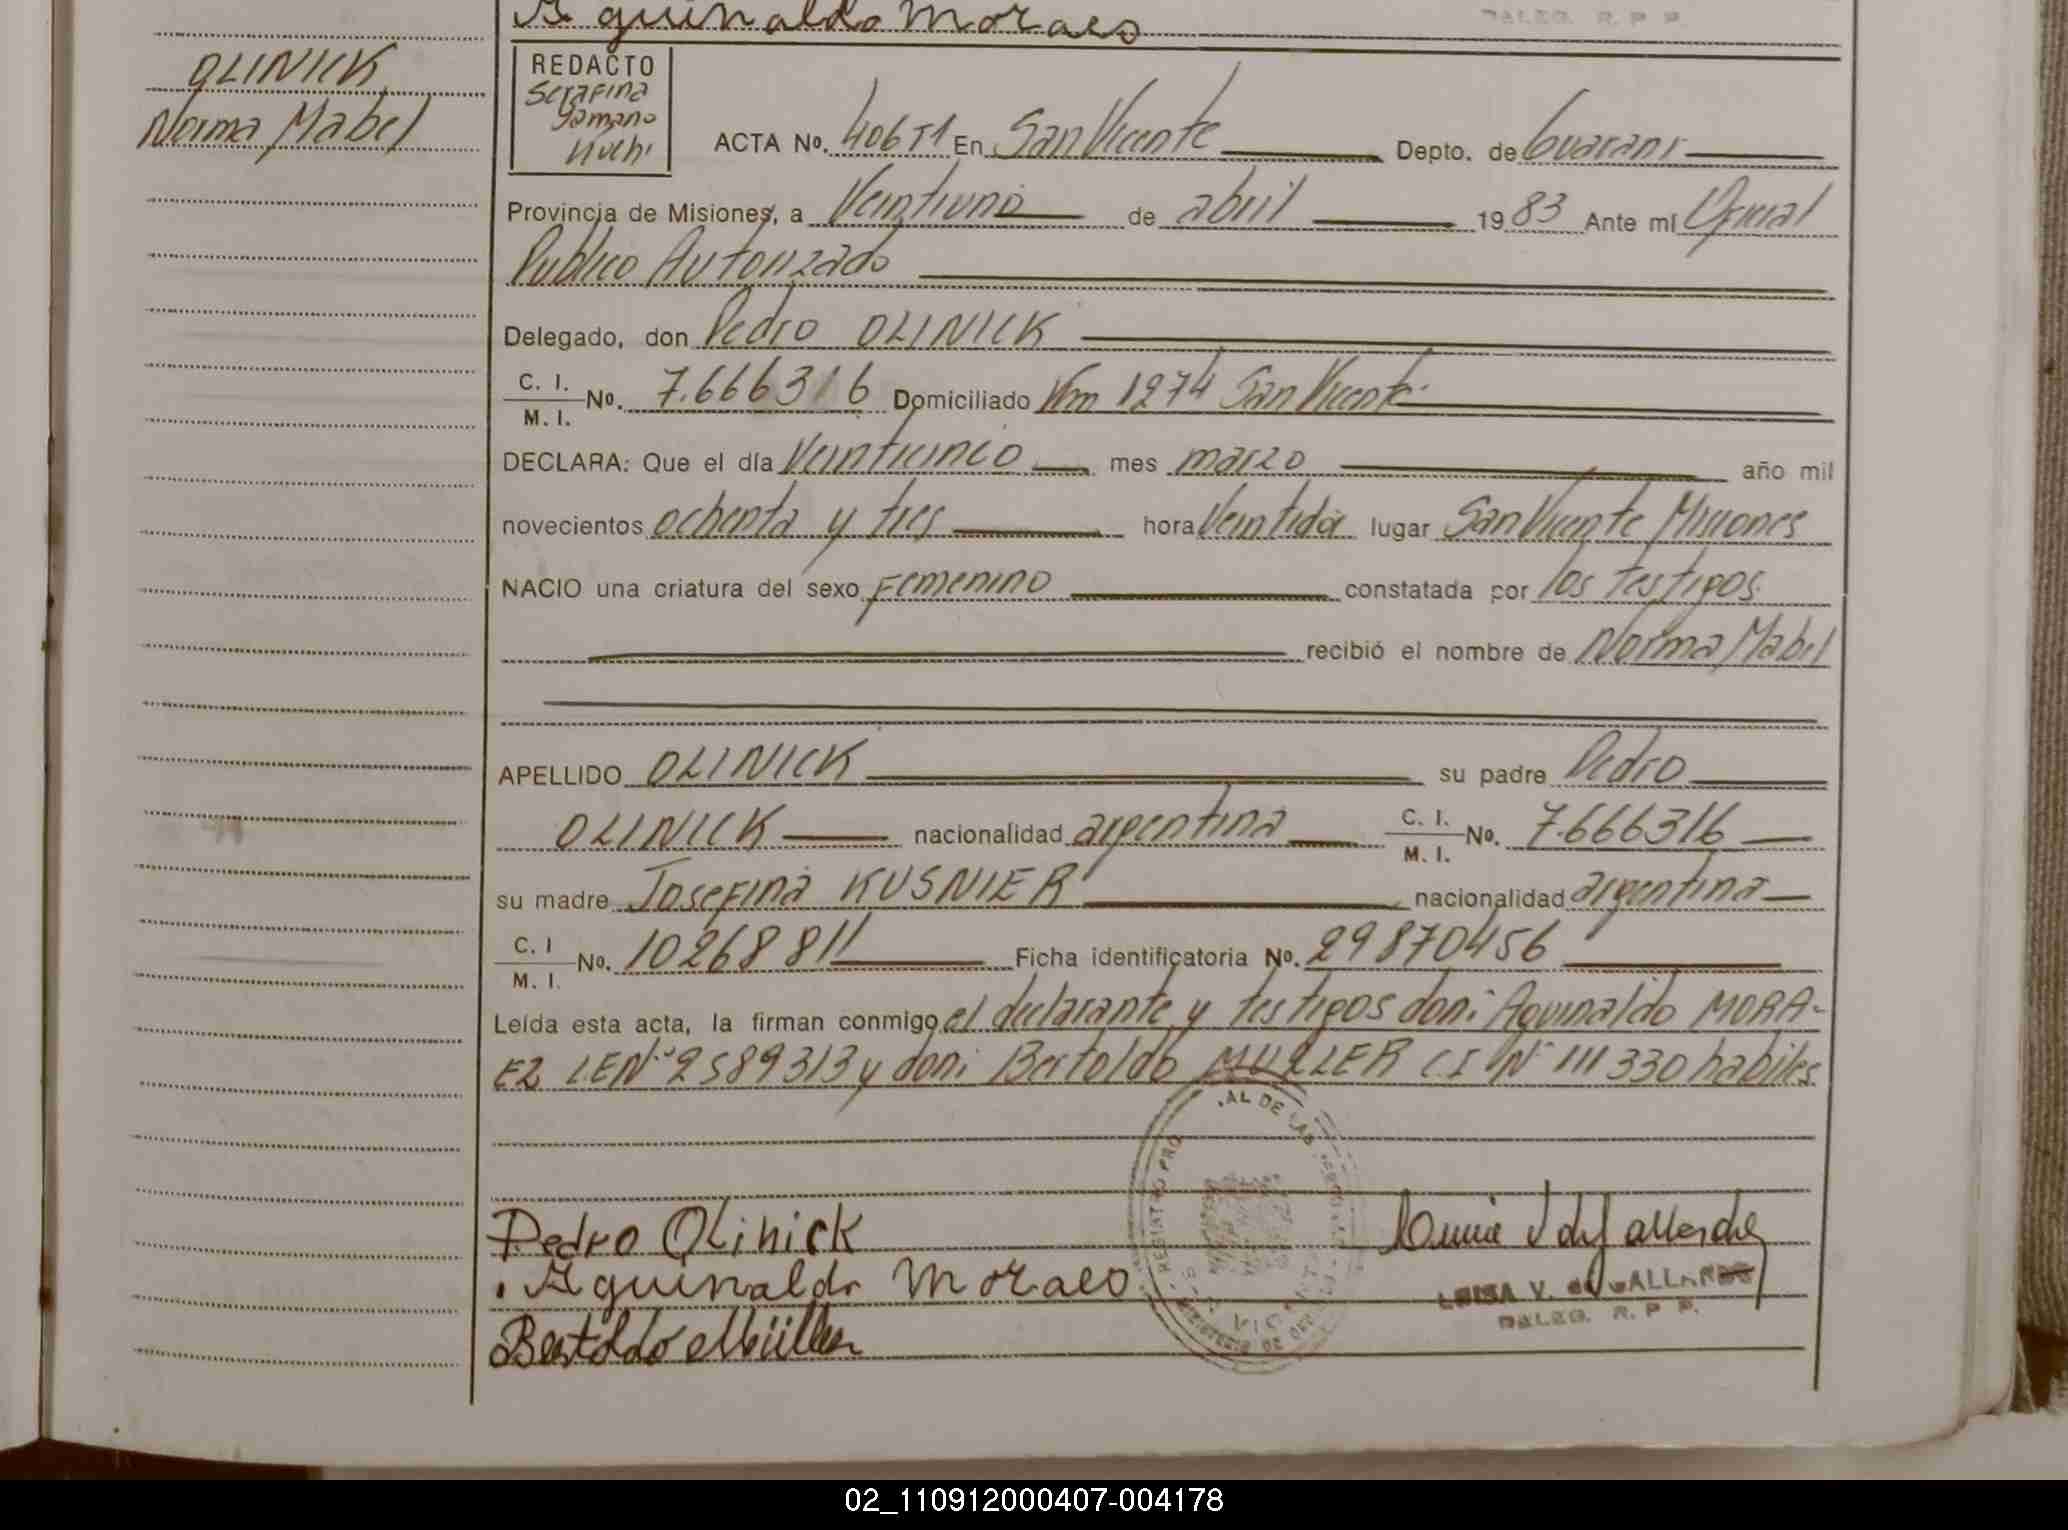 Aguinaldo Moraes
DALEG. R. P. P.
OLINICK
Norma Mabel
REDACTO
Serafina
Yamano
ACTA Nº. 406 T1 En San Vicente Depto. de Guarani
Provincia de Misiones, a Veintiuno de abril 1983 Ante mí Oficial
Publico Autorizado
Delegado, don Pedro OLINICK
C. I. / M. I. Nº. 7.666316 Domiciliado Km 1274 San Vicente
DECLARA: Que el día Veinticinco mes marzo año mil
novecientos ochenta y tres hora Veintidos lugar San Vicente Misiones
NACIO una criatura del sexo Femenino constatada por los testigos
recibió el nombre de Norma Mabel
APELLIDO OLINICK su padre Pedro
OLINICK nacionalidad argentina C. I. / M. I. Nº. 7.666316
su madre Josefina KUSNIER nacionalidad argentina
C. I / M. I. Nº. 10268811 Ficha identificatoria Nº. 29870456
Leída esta acta, la firman conmigo el declarante y testigos don: Aguinaldo MORA-
EZ LE Nº 2589313 y don: Bertoldo MULLER C I Nº 111330 habiles
Pedro Olinick
Aguinaldo Moraes
Bertoldo Müller
LUISA V. de GALLARDO
DALEG. R. P. P.
02_110912000407-004178